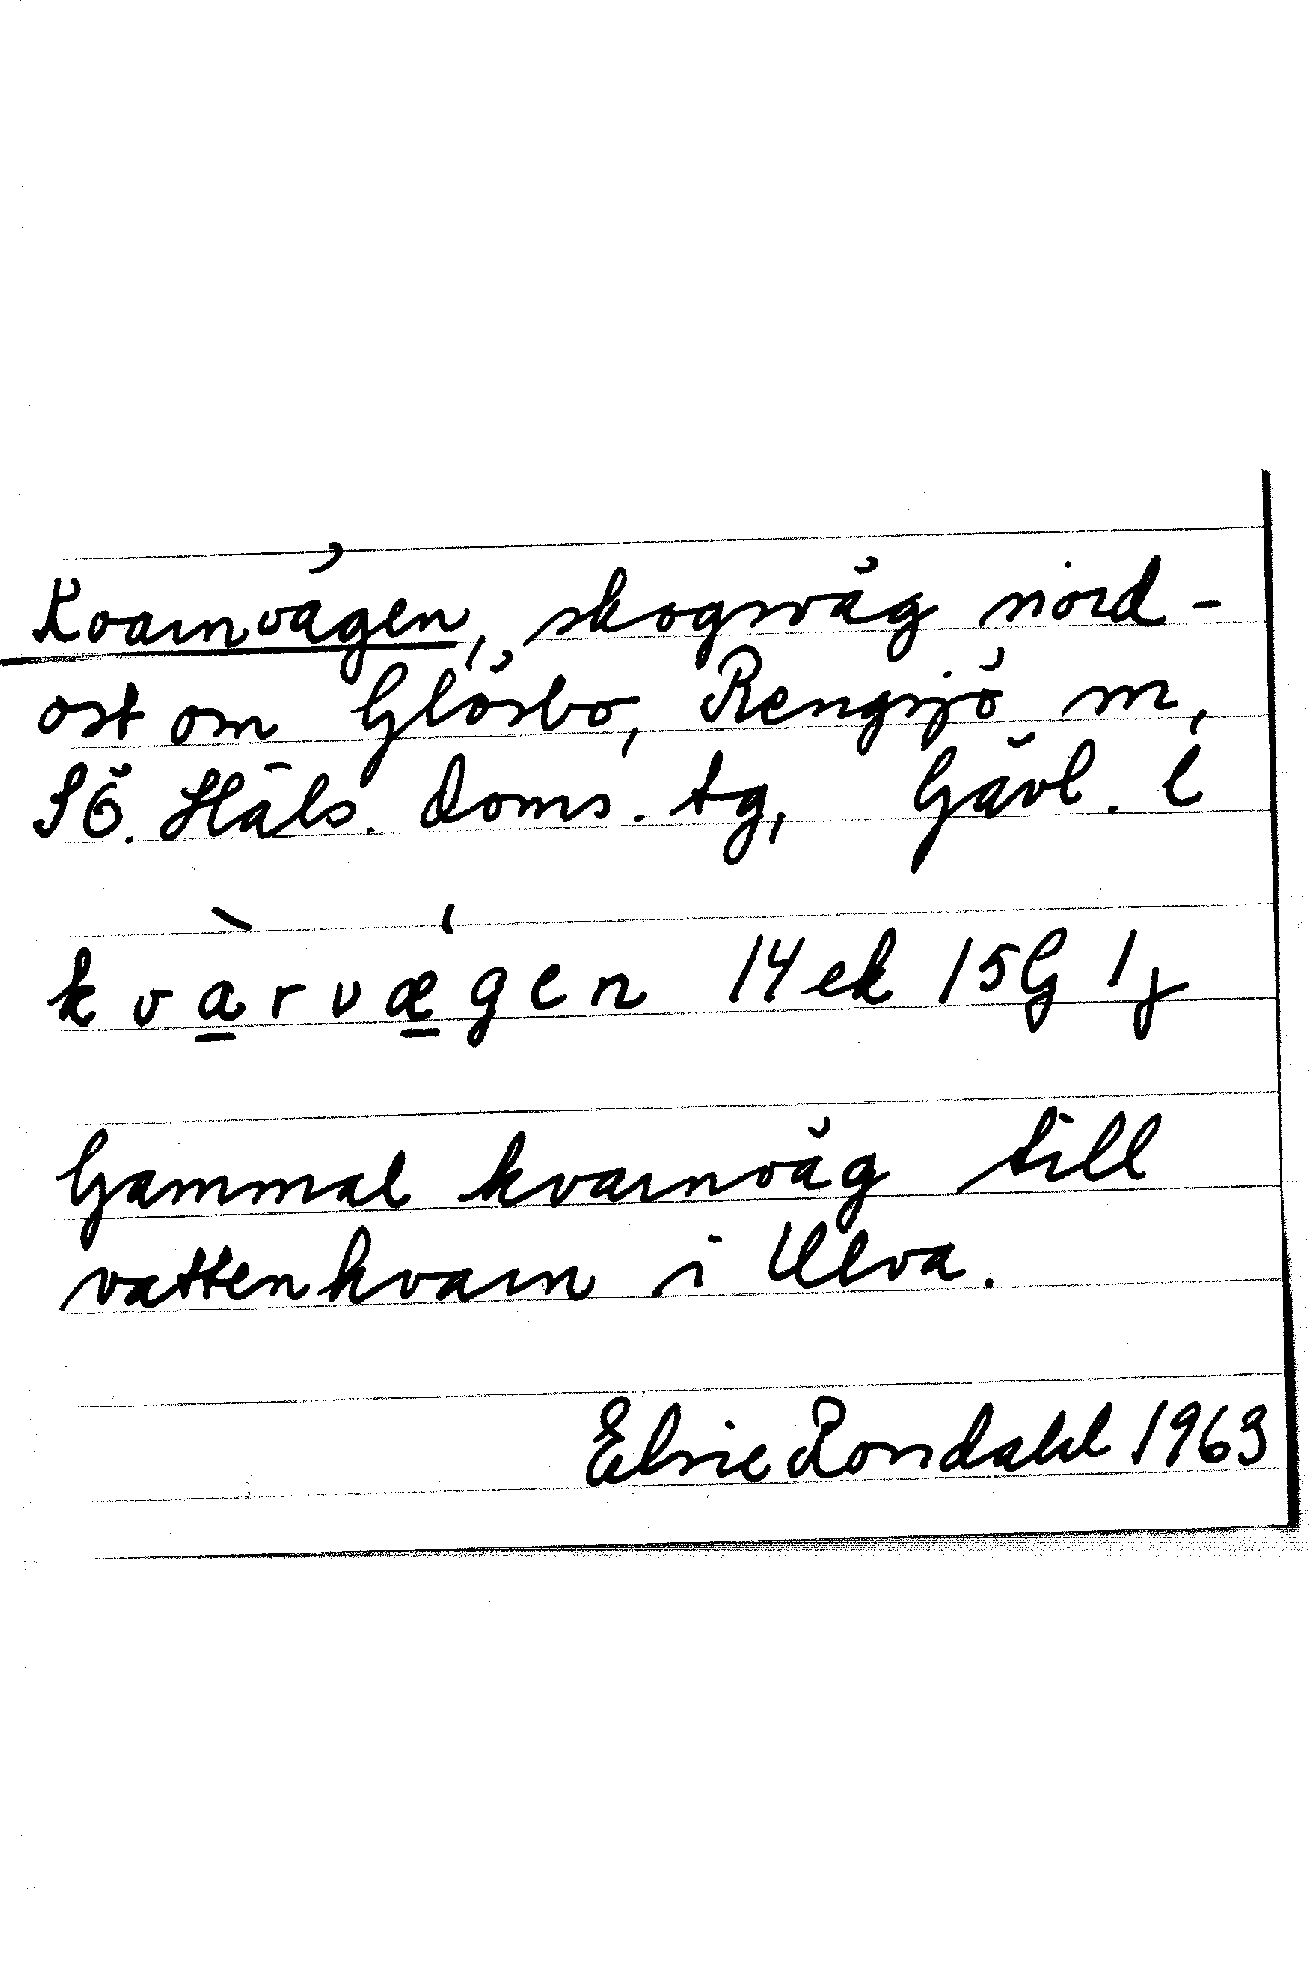 Kvarnvägen, skogsväg nord-
ost om Glösbo, Rengsjö sn,
SÖ. Häls. Doms. tg, Gävl. l
kvàrvǽgen 14 ek 15G 1j
Gammal kvarnväg till
vattenkvarn i Ulva.
Elsie Rondahl 1963